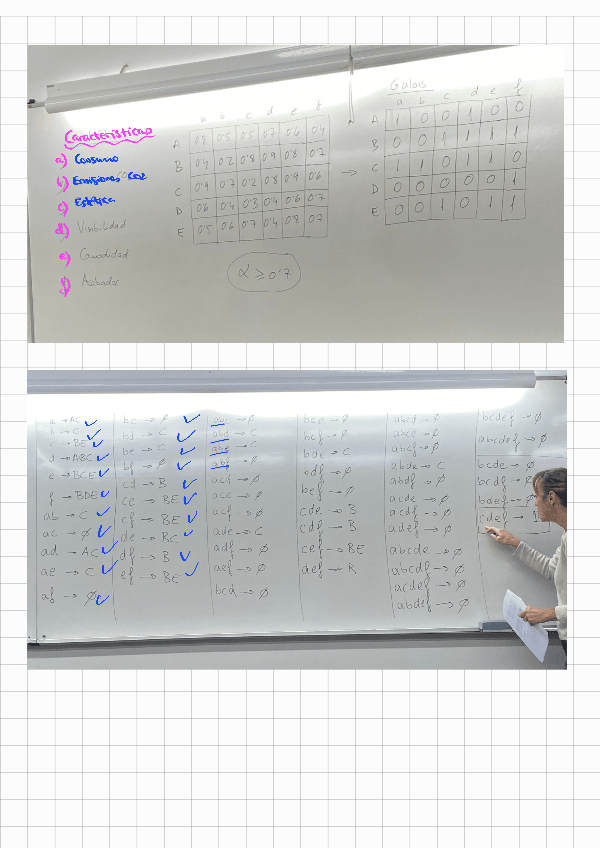 Características
a) Consumo
b) Emisiones CO2
c) Estética
d) Visibilidad
e) Comodidad
f) Acabados
a b c d e f
A 0'8 0'5 0'5 0'7 0'6 0'4
B 0'4 0'2 0'8 0'9 0'8 0'7
C 0'9 0'7 0'2 0'8 0'9 0'6
D 0'6 0'4 0'3 0'4 0'6 0'7
E 0'5 0'6 0'7 0'4 0'8 0'7
α ≥ 0'7
→
Galois
a b c d e f
A 1 0 0 1 0 0
B 0 0 1 1 1 1
C 1 1 0 1 1 0
D 0 0 0 0 0 1
E 0 0 1 0 1 1
a → AC
b → C
c → BE
d → ABC
e → BCE
f → BDE
ab → C
ac → ∅
ad → AC
ae → C
af → ∅
bc → ∅
bd → C
be → C
bf → ∅
cd → B
ce → BE
cf → BE
de → BC
df → B
ef → BE
abc → ∅
abd → C
abe → C
abf → ∅
acd → ∅
ace → ∅
acf → ∅
ade → C
adf → ∅
aef → ∅
bcd → ∅
bce → ∅
bcf → ∅
bde → C
bdf → ∅
bef → ∅
cde → B
cdf → B
cef → BE
def → B
abcd → ∅
abce → ∅
abcf → ∅
abde → C
abdf → ∅
acde → ∅
acdf → ∅
adef → ∅
abcde → ∅
abcdf → ∅
acdef → ∅
abdef → ∅
bcdef → ∅
abcdef → ∅
bcde → ∅
bcdf →
→ ∅
cdef →